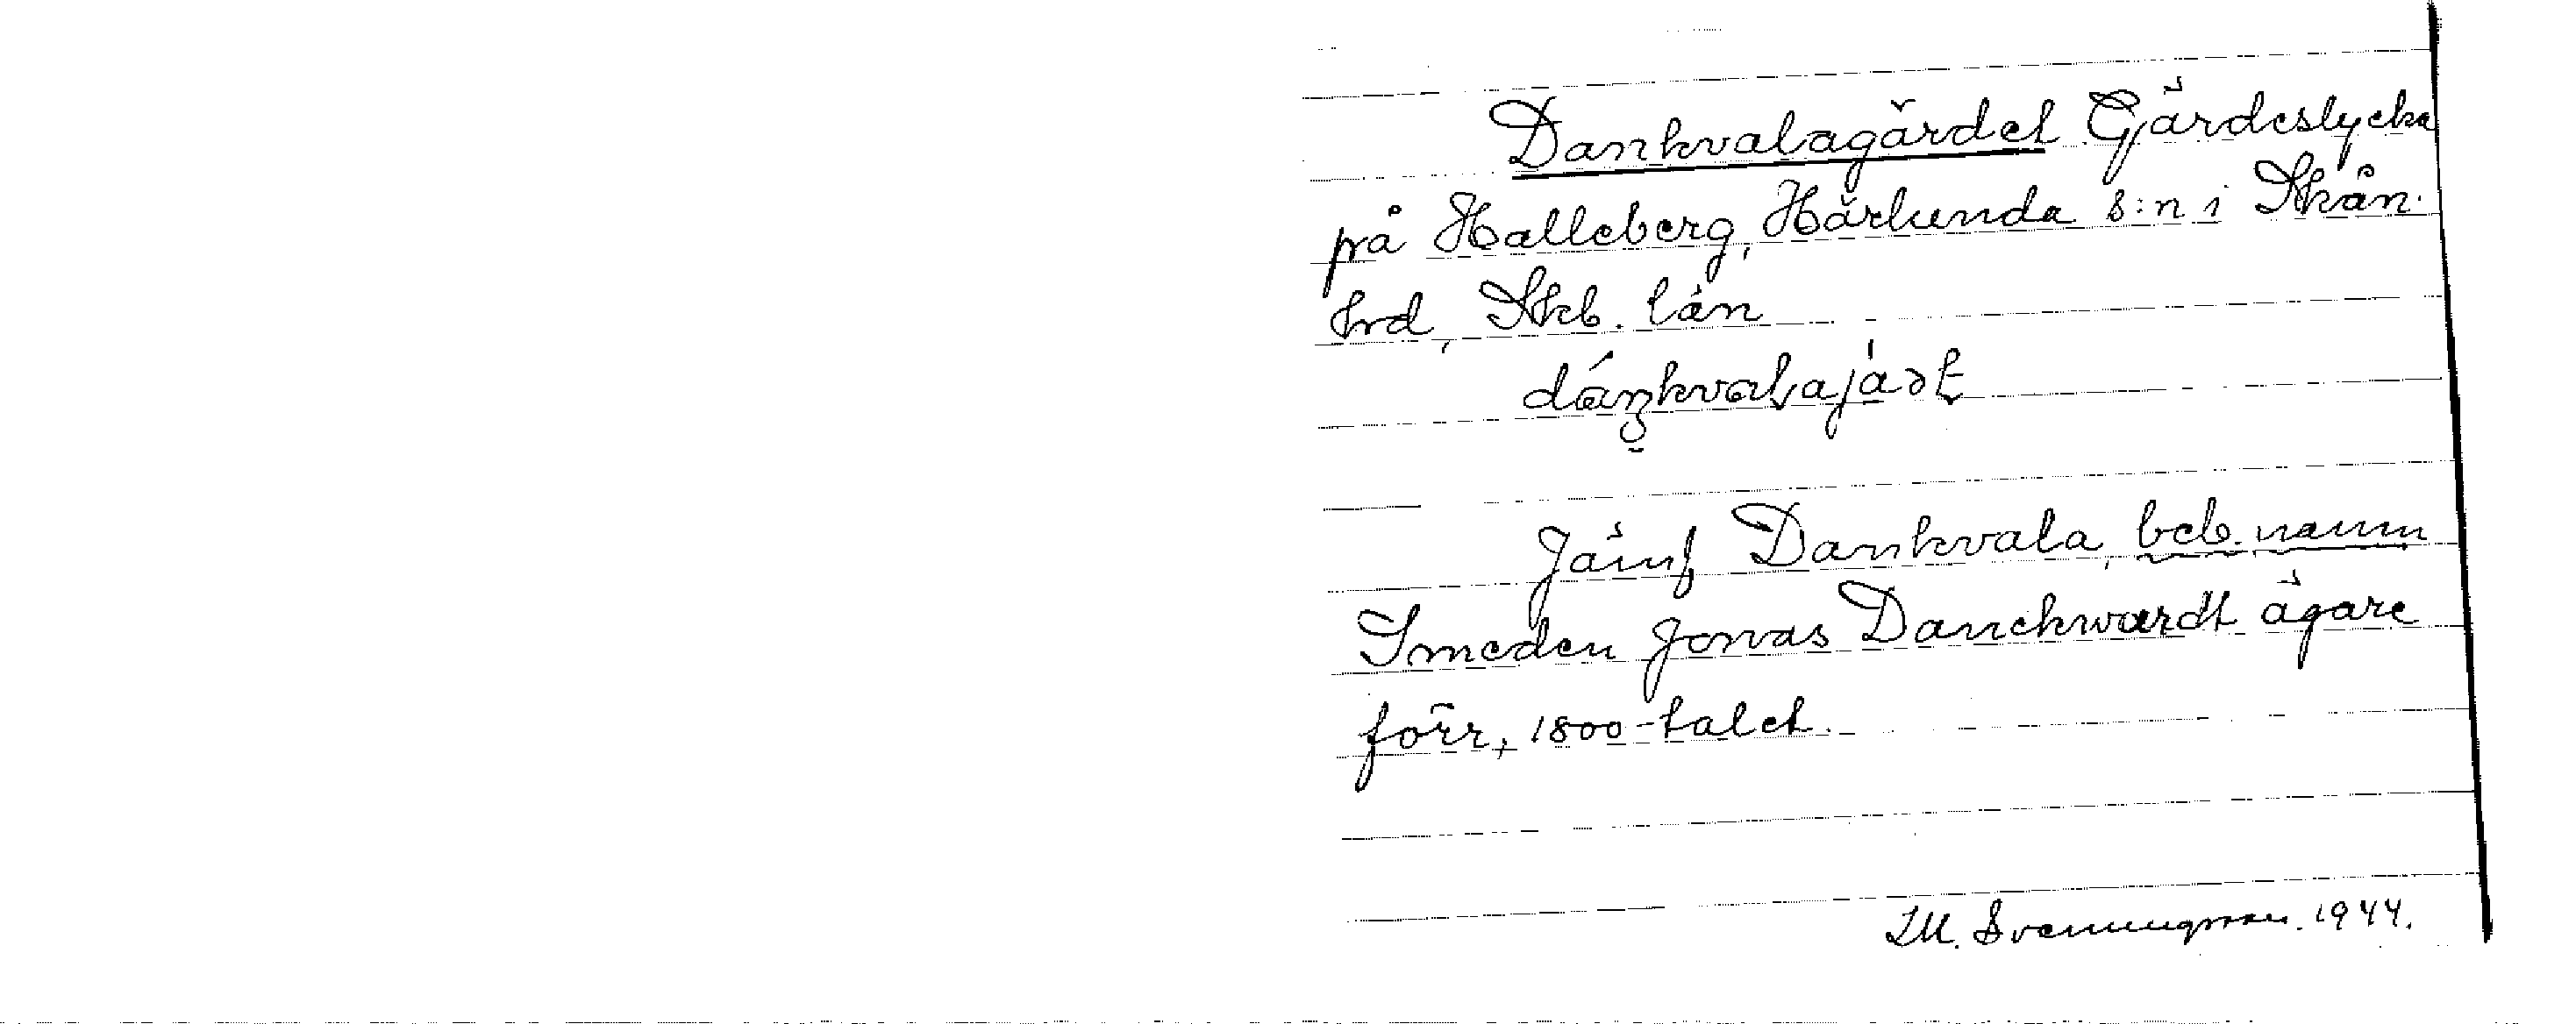 Dankvalagärdet Gärdeslycka
på Halleberg, Härlunda s:n i Skån.
hrd, Skb. län
dáŋkvalajàɂt
Jämf Dankvala, beb.namn
Smeden Jonas Danckwardt ägare
förr, 1800-talet.
M. Svenningsson. 1944.